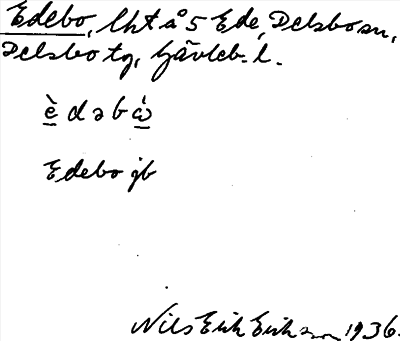 Edebo, lht å 5 Ede, Delsbo sn,
Delsbo tg, Gävleb. l.
è d ə b ὼ
Edebo jb
Nils Erik Eriksson 1936.